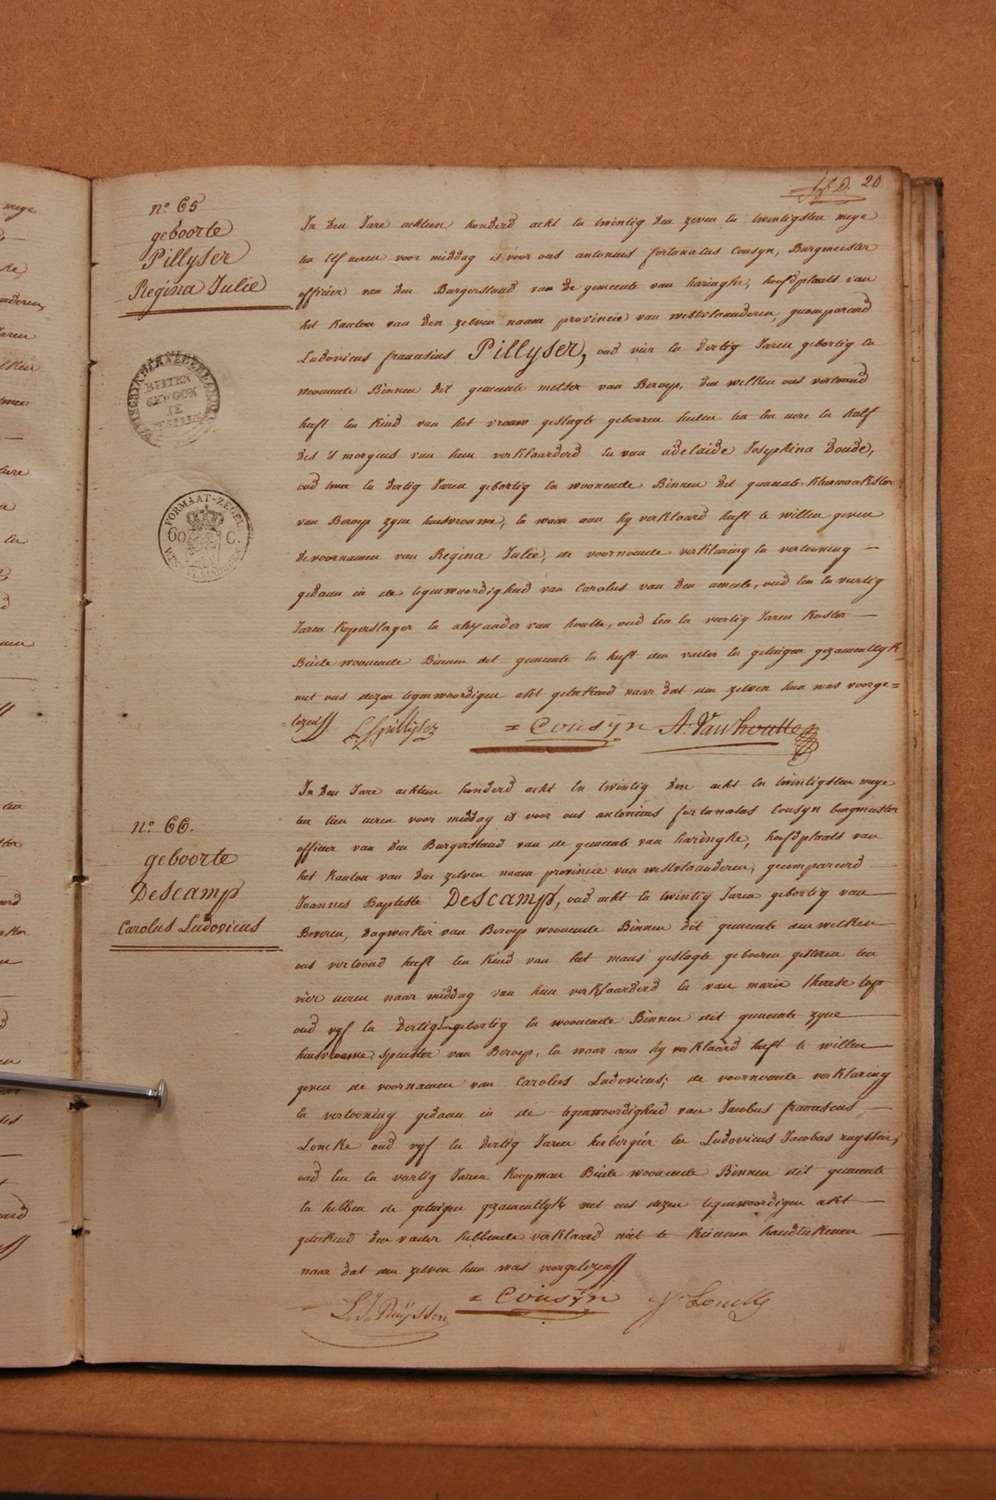 20
nº 65
geboorte
Pillyser
Regina Julie
In den Jare achtien honderd acht en twintig den zeven en twintigsten meye
ten elf uren voor middag is voor ons antonius fortunatus Cousyn, Burgmeester
officier van den Burgerstand van de gemeente van haringhe, hoofdplaats van
het kanton van den zelven naam provincie van westvlaanderen, gecompareerd
Ludovicus franciscus Pillyser, oud vier en dertig Jaren geboortig en
woonende Binnen dit gemeente metser van Beroep, den welken ons vertoond
heeft een kind van het vrouw geslagte geboren heden ten een ure en half
des 's morgens van hem verklaarderd en van adelaide Josephina Doude,
oud twee en dertig Jaren geboortig en woonende Binnen dit gemeente
van Beroep zyne huisvrouwe, en waar aan hy verklaard heeft te willen geven
de voornamen van Regina Julie, de voornoemde verklaring en vertooning
gedaan in de tegenwoordigheid van Carolus van den ameele, oud een en veertig
Jaren koperslager en alexander van houtte, oud een en veertig Jaren koster
Beide woonende Binnen dit gemeente en heeft den vader en getuigen gezamentlyk
met ons dezen tegenwoordigen akt geteekend naar dat um zelven hun was voorge=
=lezen
L f pillyser = Cousÿn A. Vanhoutte
WESTEN GEWOON
FORMAAT-ZEGEL
60 C.
nº 66.
geboorte
Descamp
Carolus Ludovicus
In den Jare achtien honderd acht en twintig den acht en twintigsten meye
ten tien uren voor middag is voor ons antonius fortunatus Cousyn burgmeester
officier van den Burgerstand van de gemeente van haringhe, hoofdplaats van
het kanton van den zelven naam provincie van westvlaanderen, gecompareerd
Joannes Baptiste Descamp, oud acht en twintig Jaren geboortig van
Beveren, dagwerker van Beroep woonende Binnen dit gemeente den welken
ons vertoond heeft een kind van het mans geslagte geboren gisteren ten
vier uren naar middag van hem verklaarderd en van marie therese
oud vyf en dertig geboortig en woonende Binnen dit gemeente zyne
huisvrouwe, spinster van Beroep, en waar aan hy verklaard heeft te willen
geven de voornamen van Carolus Ludovicus; de voornoemde verklaring
en vertooning gedaan in de tegenwoordigheid van Jacobus franciscus
Loncke oud vyf en dertig Jaren herbergier en Ludovicus Jacobus ruyssen,
oud een en veertig Jaren koopman Beide woonende Binnen dit gemeente
en hebben de getuigen gezamentlyk met ons dezen tegenwoordigen akt
geteekend den vader hebbende verklaard niet te kunnen handteekenen
naar dat um zelven hun was voorgelezen
L. J. Ruÿssen = Cousÿn J. Loncke